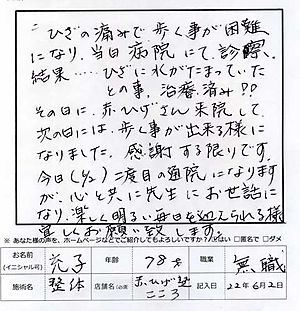 ひざの痛みで歩く事が困難
になり、当日病院にて診察、
結果‥‥ひざに水がたまっていた
との事、治療痛み??
その日に、赤ひげさん来院して
次の日には、歩く事が出来る様に
なりました。感謝する限りです。
今日(6/2)二度目の通院になります
が、心と共に先生にお世話に
なり、楽しく明るい毎日を迎えられる様
宜しくお願い致します。
※ あなた様の声を、ホームページなどでご紹介してもよろしいですか?
はい □匿名で □ダメ
お名前
(イニシャル可)
年齢 78才 職業 無職
施術名 整体 店舗名(必須) 赤ひげ塾
こころ
記入日 22年6月2日